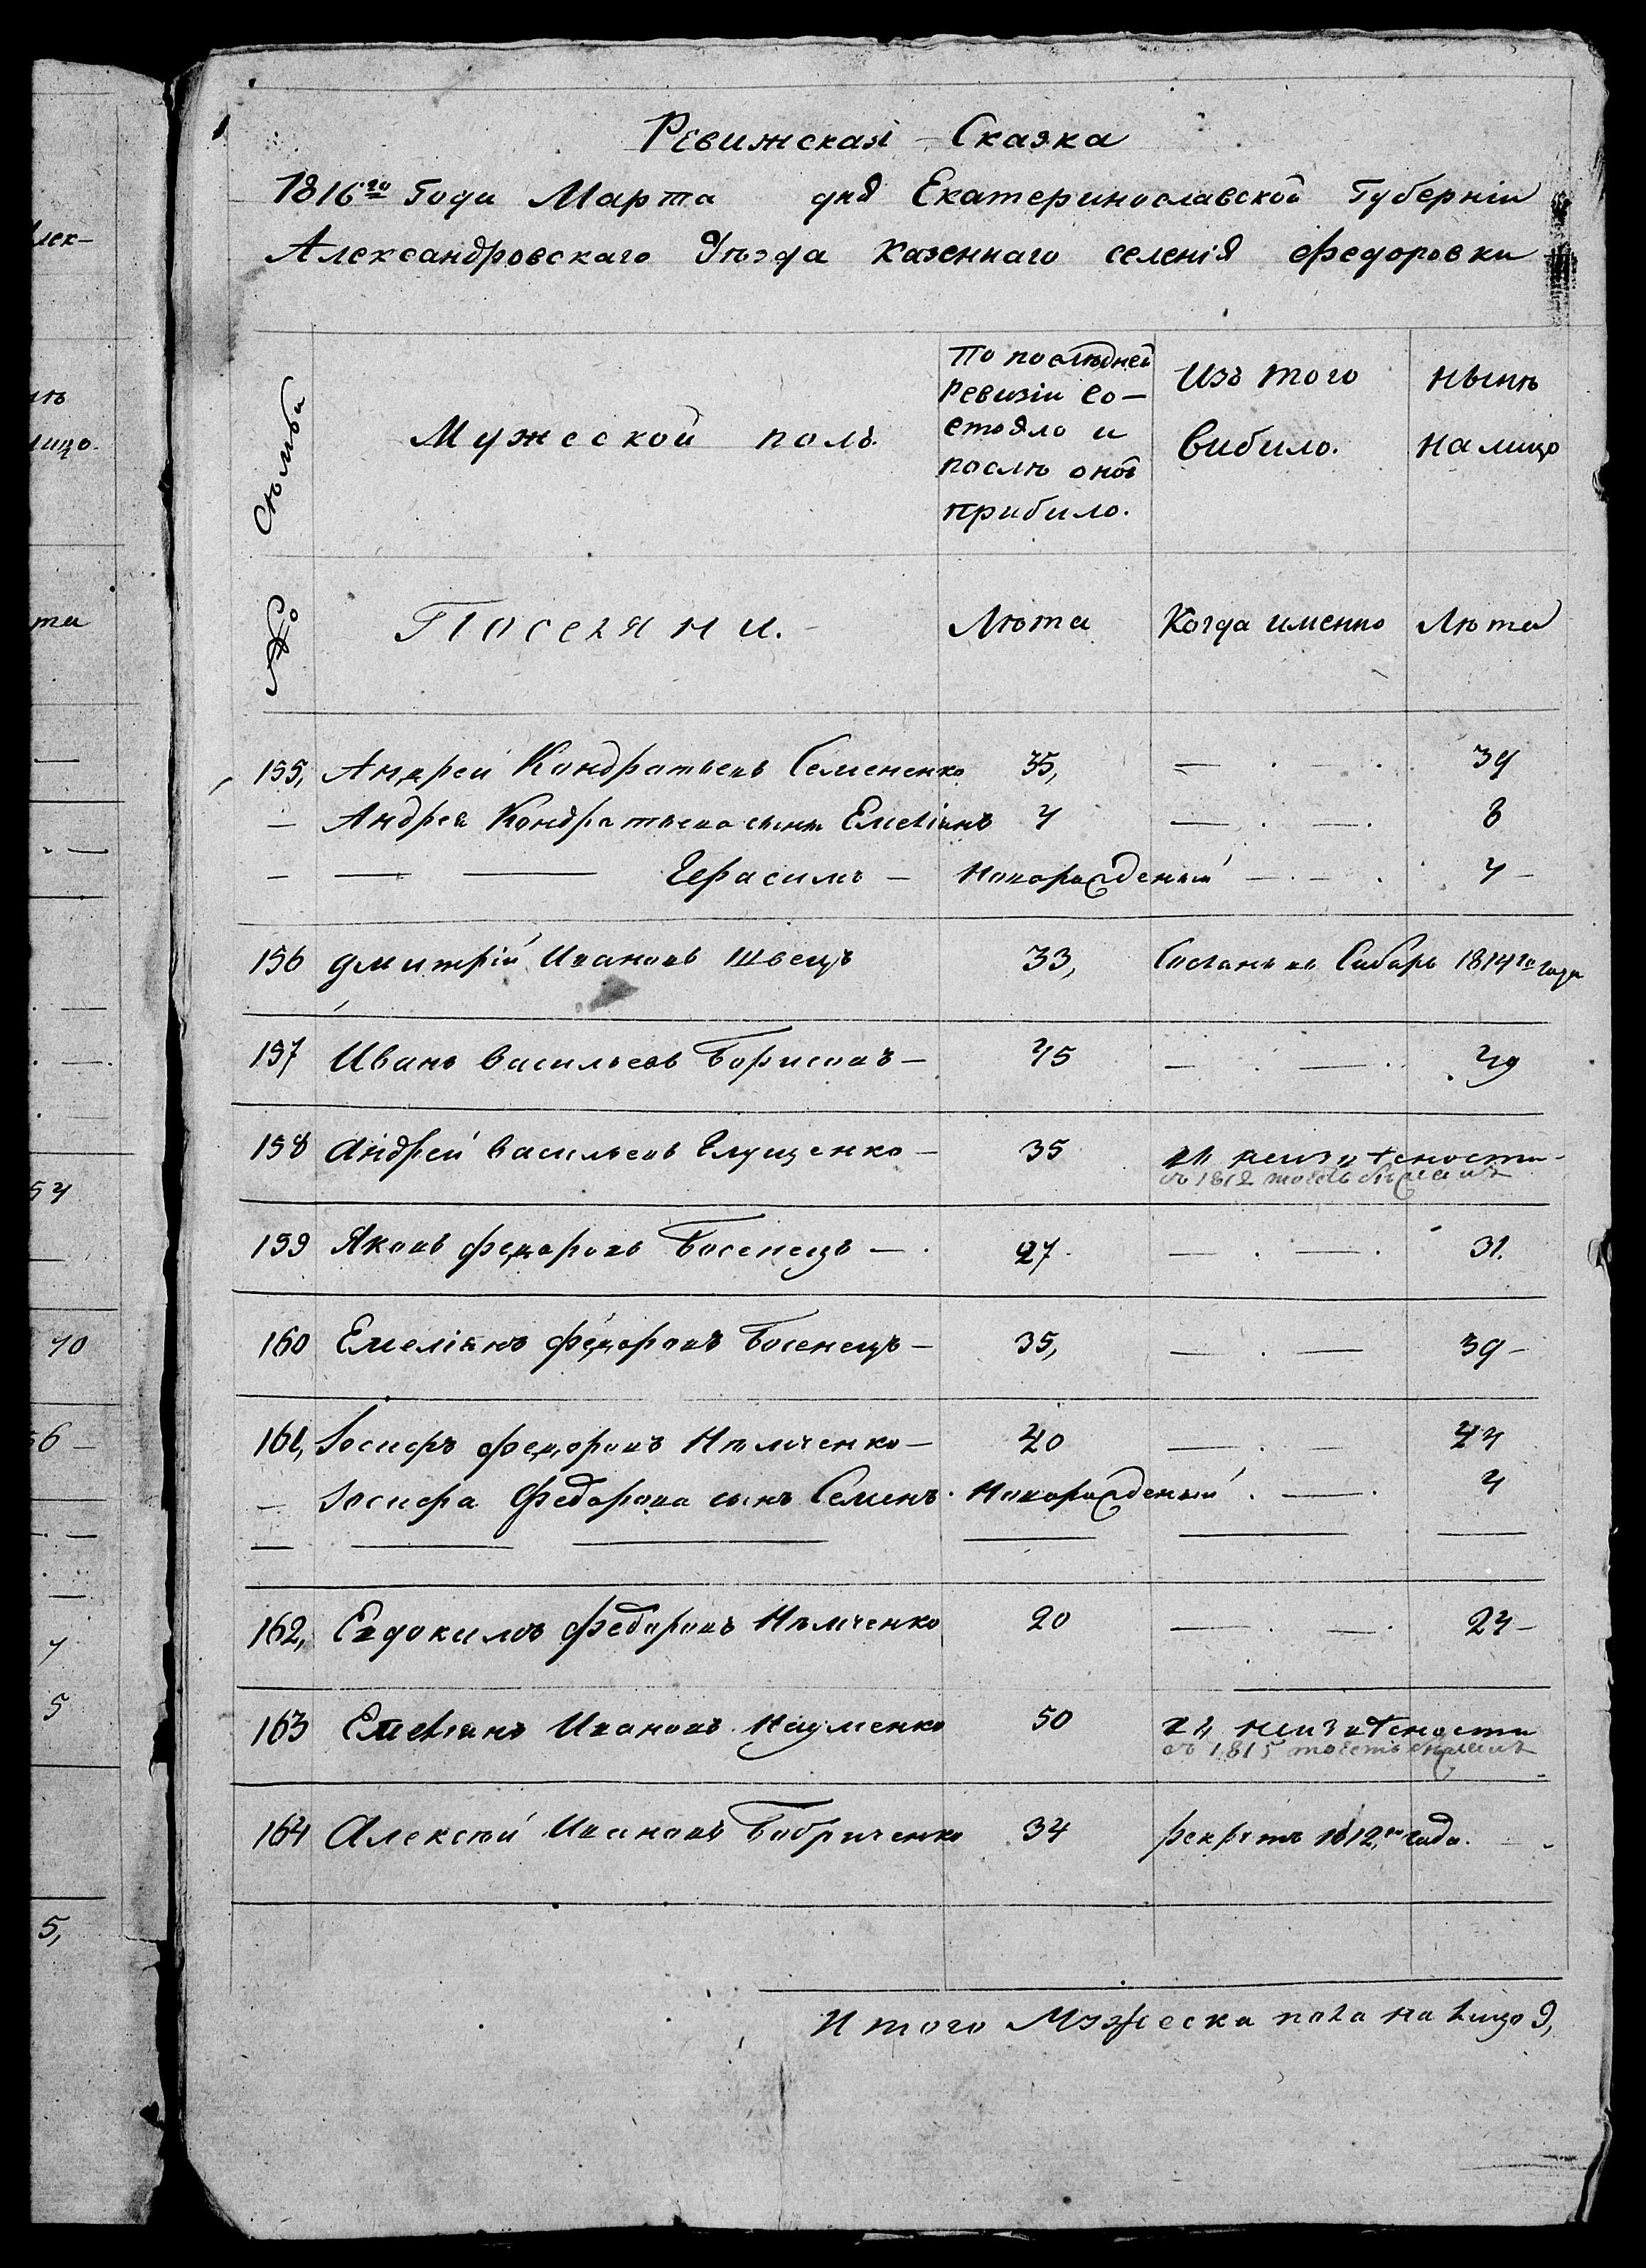 Ревижская Сказка
1816го Года Марта дня Екатеринославской Губерніи
Александровскаго Уѣзда казеннаго селенія Федоровки
Мужеской полъ
По послѣдней ревизіи со-
стояло и послѣ оной прибило.
Изъ того вибило.
Нынѣ на лицо
№ Поселяни.
Лѣта
Когда именно
Лѣта
155, Андрей Кондратьевъ Семененко 35, — . — . 39
— Андрея Кондратьева сынъ Емеліянъ 4 — . — . 8
— — — Герасимъ — Новорожденый — . — . 4 —
156 Дмитрій Ивановъ Швецъ 33, Сосланъ въ Сибирь 1814го года
157 Иванъ Васильевъ Борисовъ — 45 — . — . 49
158 Андрей Васильевъ Глущенко — 35 въ неизвѣсности —
съ 1812
159 Яковъ Федоровъ Босенецъ — . 27 . — . — . 31.
160 Емеліянъ Федоровъ Босенецъ — 35, — . — 39 —
161, Іосифъ Федоровъ Нѣмченко — 40 — . — 44
— Іосифа Федорова сынъ Семенъ . Новорожденый . — . 4
— — — — — —
162, Евдокимъ Федоровъ Нѣмченко 20 — . — . 24 —
163 Емеліянъ Ивановъ Науменко 50 въ неизвѣсности
съ 1815
164 Алексѣй Ивановъ Бобриченко 34 рекрутъ 1812го года.
Итого Мужеска пола на лицо 9,
лек-
лицо.
та
54
40
56 —
4
5
5,